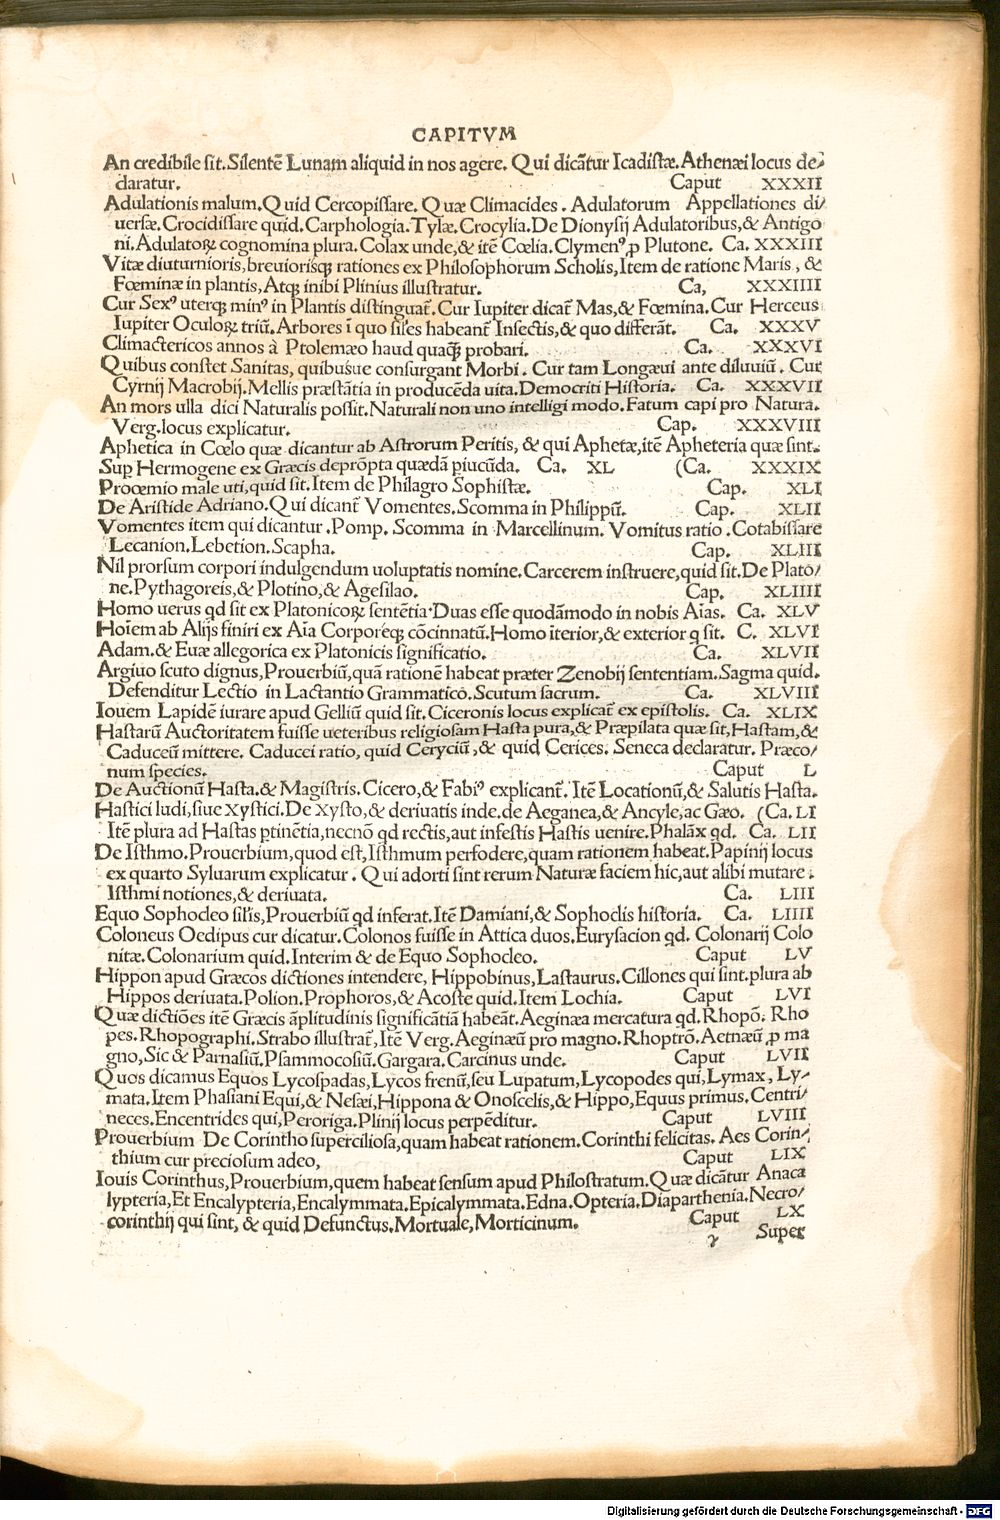 CAPITVM
An credibile sit. Silentē Lunam aliquid in nos agere. Qui dicātur Icadistæ. Athenæi locus de⸗
claratur. Caput XXXII
Adulationis malum. Quid Cercopissare. Quæ Climacides. Adulatorum Appellationes di/
uersæ. Crocidissare quid. Carphologia. Tylæ. Crocylia. De Dionysij Adulatoribus, & Antigo
ni. Adulatoꝝ cognomina plura. Colax unde, & itē Cœlia. Clymenꝰ ꝓ Plutone. Ca. XXXIII
Vitæ diuturnioris, breuiorisqꝫ rationes ex Philosophorum Scholis, Item de ratione Maris, &
Fœminæ in plantis, Atqꝫ inibi Plinius illustratur. Ca, XXXIIII
Cur Sexꝰ uterqꝫ minꝰ in Plantis distinguat̄. Cur Iupiter dicat̄ Mas, & Fœmina. Cur Herceus
Iupiter Oculoꝝ triū. Arbores ī quo siles habeant̄ Insectis, & quo differāt. Ca. XXXV
Climactericos annos à Ptolemæo haud quaqꝫ probari. Ca. XXXVI
Quibus constet Sanitas, quibusue consurgant Morbi. Cur tam Longæui ante diluuiū. Cur
Cyrnij Macrobij. Mellis præstātia in producēda uita. Democriti Historia. Ca. XXXVII
An mors ulla dici Naturalis possit. Naturali non uno intelligi modo. Fatum capi pro Natura.
Verg. locus explicatur. Cap. XXXVIII
Aphetica in Cœlo quæ dicantur ab Astrorum Peritis, & qui Aphetæ, itē Apheteria quæ sint.
Sup Hermogene ex Græcis deprōpta quædā piucūda. Ca. XL (Ca. XXXIX
Proœmio male uti, quid sit. Item de Philagro Sophistæ. Cap. XLI
De Aristide Adriano. Qui dicant̄ Vomentes. Scomma in Philippū. Cap. XLII
Vomentes item qui dicantur. Pomp. Scomma in Marcellinum. Vomitus ratio. Cotabissare
Lecanion. Lebetion. Scapha. Cap. XLIII
Nil prorsum corpori indulgendum uoluptatis nomine. Carcerem instruere, quid sit. De Plato/
ne. Pythagoreis, & Plotino, & Agesilao. Cap. XLIIII
Homo uerus qd sit ex Platonicoꝝ sentētia. Duas esse quodāmodo in nobis Aīas. Ca. XLV
Hoīem ab Alijs finiri ex Aīa Corporeqꝫ cōcinnatū. Homo īterior, & exterior q sit. C. XLVI
Adam. & Euæ allegorica ex Platonicis significatio. Ca. XLVII
Argiuo scuto dignus, Prouerbiū, quā rationē habeat præter Zenobij sententiam. Sagma quid.
Defenditur Lectio in Lactantio Grammatico. Scutum sacrum. Ca. XLVIII
Iouem Lapidē iurare apud Gelliū quid sit. Ciceronis locus explicat̄ ex epistolis. Ca. XLIX
Hastarū Auctoritatem fuisse ueteribus religiosam Hasta pura, & Præpilata quæ sit, Hastam, &
Caduceū mittere. Caducei ratio, quid Ceryciū, & quid Cerices. Seneca declaratur. Præco/
num species. Caput L
De Auctionū Hasta. & Magistris. Cicero, & Fabiꝰ explicant̄. Itē Locationū, & Salutis Hasta.
Hastici ludi, siue Xystici. De Xysto, & deriuatis inde. de Aeganea, & Ancyle, ac Gæo. (Ca. LI
Itē plura ad Hastas ptinētia, necnō qd rectis, aut infestis Hastis uenire. Phalāx qd. Ca. LII
De Isthmo. Prouerbium, quod est, Isthmum perfodere, quam rationem habeat. Papinij locus
ex quarto Syluarum explicatur. Qui adorti sint rerum Naturæ faciem hic, aut alibi mutare.
Isthmi notiones, & deriuata. Ca. LIII
Equo Sophocleo silis, Prouerbiū qd inferat. Itē Damiani, & Sophoclis historia. Ca. LIIII
Coloneus Oedipus cur dicatur. Colonos fuisse in Attica duos. Eurysacion qd. Colonarij Colo
nitæ. Colonarium quid. Interim & de Equo Sophocleo. Caput LV
Hippon apud Græcos dictiones intendere, Hippobinus, Lastaurus. Cillones qui sint. plura ab
Hippos deriuata. Polion. Prophoros, & Acoste quid. Item Lochia. Caput LVI
Quæ dictiōes itē Græcis āplitudinis significātiā habeāt. Aeginæa mercatura qd. Rhopō. Rho
pes. Rhopographi. Strabo illustrat̄, Itē Verg. Aeginæū pro magno. Rhoptrō. Aetnæū ꝓ ma
gno, Sic & Parnasiū. Psammocosiū. Gargara. Carcinus unde. Caput LVII
Quos dicamus Equos Lycospadas, Lycos frenū, seu Lupatum, Lycopodes qui, Lymax, Ly⸗
mata. Item Phasiani Equi, & Nesæi, Hippona & Onoscelis, & Hippo, Equus primus. Centri/
neces. Encentrides qui, Peroriga. Plinij locus perpēditur. Caput LVIII
Prouerbium De Corintho superciliosa, quam habeat rationem. Corinthi felicitas. Aes Corin⸗
thium cur preciosum adeo, Caput LIX
Iouis Corinthus, Prouerbium, quem habeat sensum apud Philostratum. Quæ dicātur Anaca
lypteria, Et Encalypteria, Encalymmata. Epicalymmata. Edna. Opteria. Diaparthenia. Necro/
corinthij qui sint, & quid Defunctus. Mortuale, Morticinum. Caput LX
Super
Digitalisierung gefördert durch die Deutsche Forschungsgemeinschaft - DFG